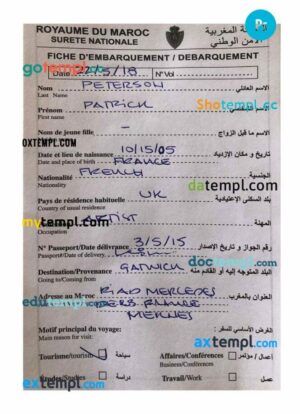 ROYAUME DU MAROC
المملكة المغربية
SURETE NATIONALE
الأمن الوطني
FICHE D'EMBARQUEMENT / DEBARQUEMENT
gotempl.com
Date 22/5/18 N° Vol
PETERSON
Nom
الاسم العائلي
Last Name
PATRICK
Shotempl.cc
Prénom
الاسم الشخصي
First name
Nom de jeune fille -
اسم ما قبل الزواج
OXTEMPL.COM
10/15/05
Date et lieu de naissance
تاريخ و مكان الازدياد
Date and place of birth
FRANCE
Nationalité
FRENCH
الجنسية
Nationality
datempl.com
Pays de résidence habituelle
UK
بلد السكنى الاعتيادية
Country of usual residence
mytempl.com
ARTIST
المهنة
Occupation
N° Passeport/Date délivrance
3/5/15
رقم الجواز و تاريخ الإصدار
Passport/Date of delivery
Destination/Provenance
GATWICK
البلد المتوجه إليه أو القادم منه
Going to/Coming from
RIAD MERCEDES
Adresse au Maroc
العنوان بالمغرب
MEKNES
Motif principal du voyage:
الغرض الأساسي للسفر:
Main reason for visit:
Tourisme/tourism
سياحة
Affaires/Conférences
أعمال / مؤتمر
Business/Conferences
axtempl.com
Etudes/Studies
دراسة
Travail/Work
عمل
axtempl.com